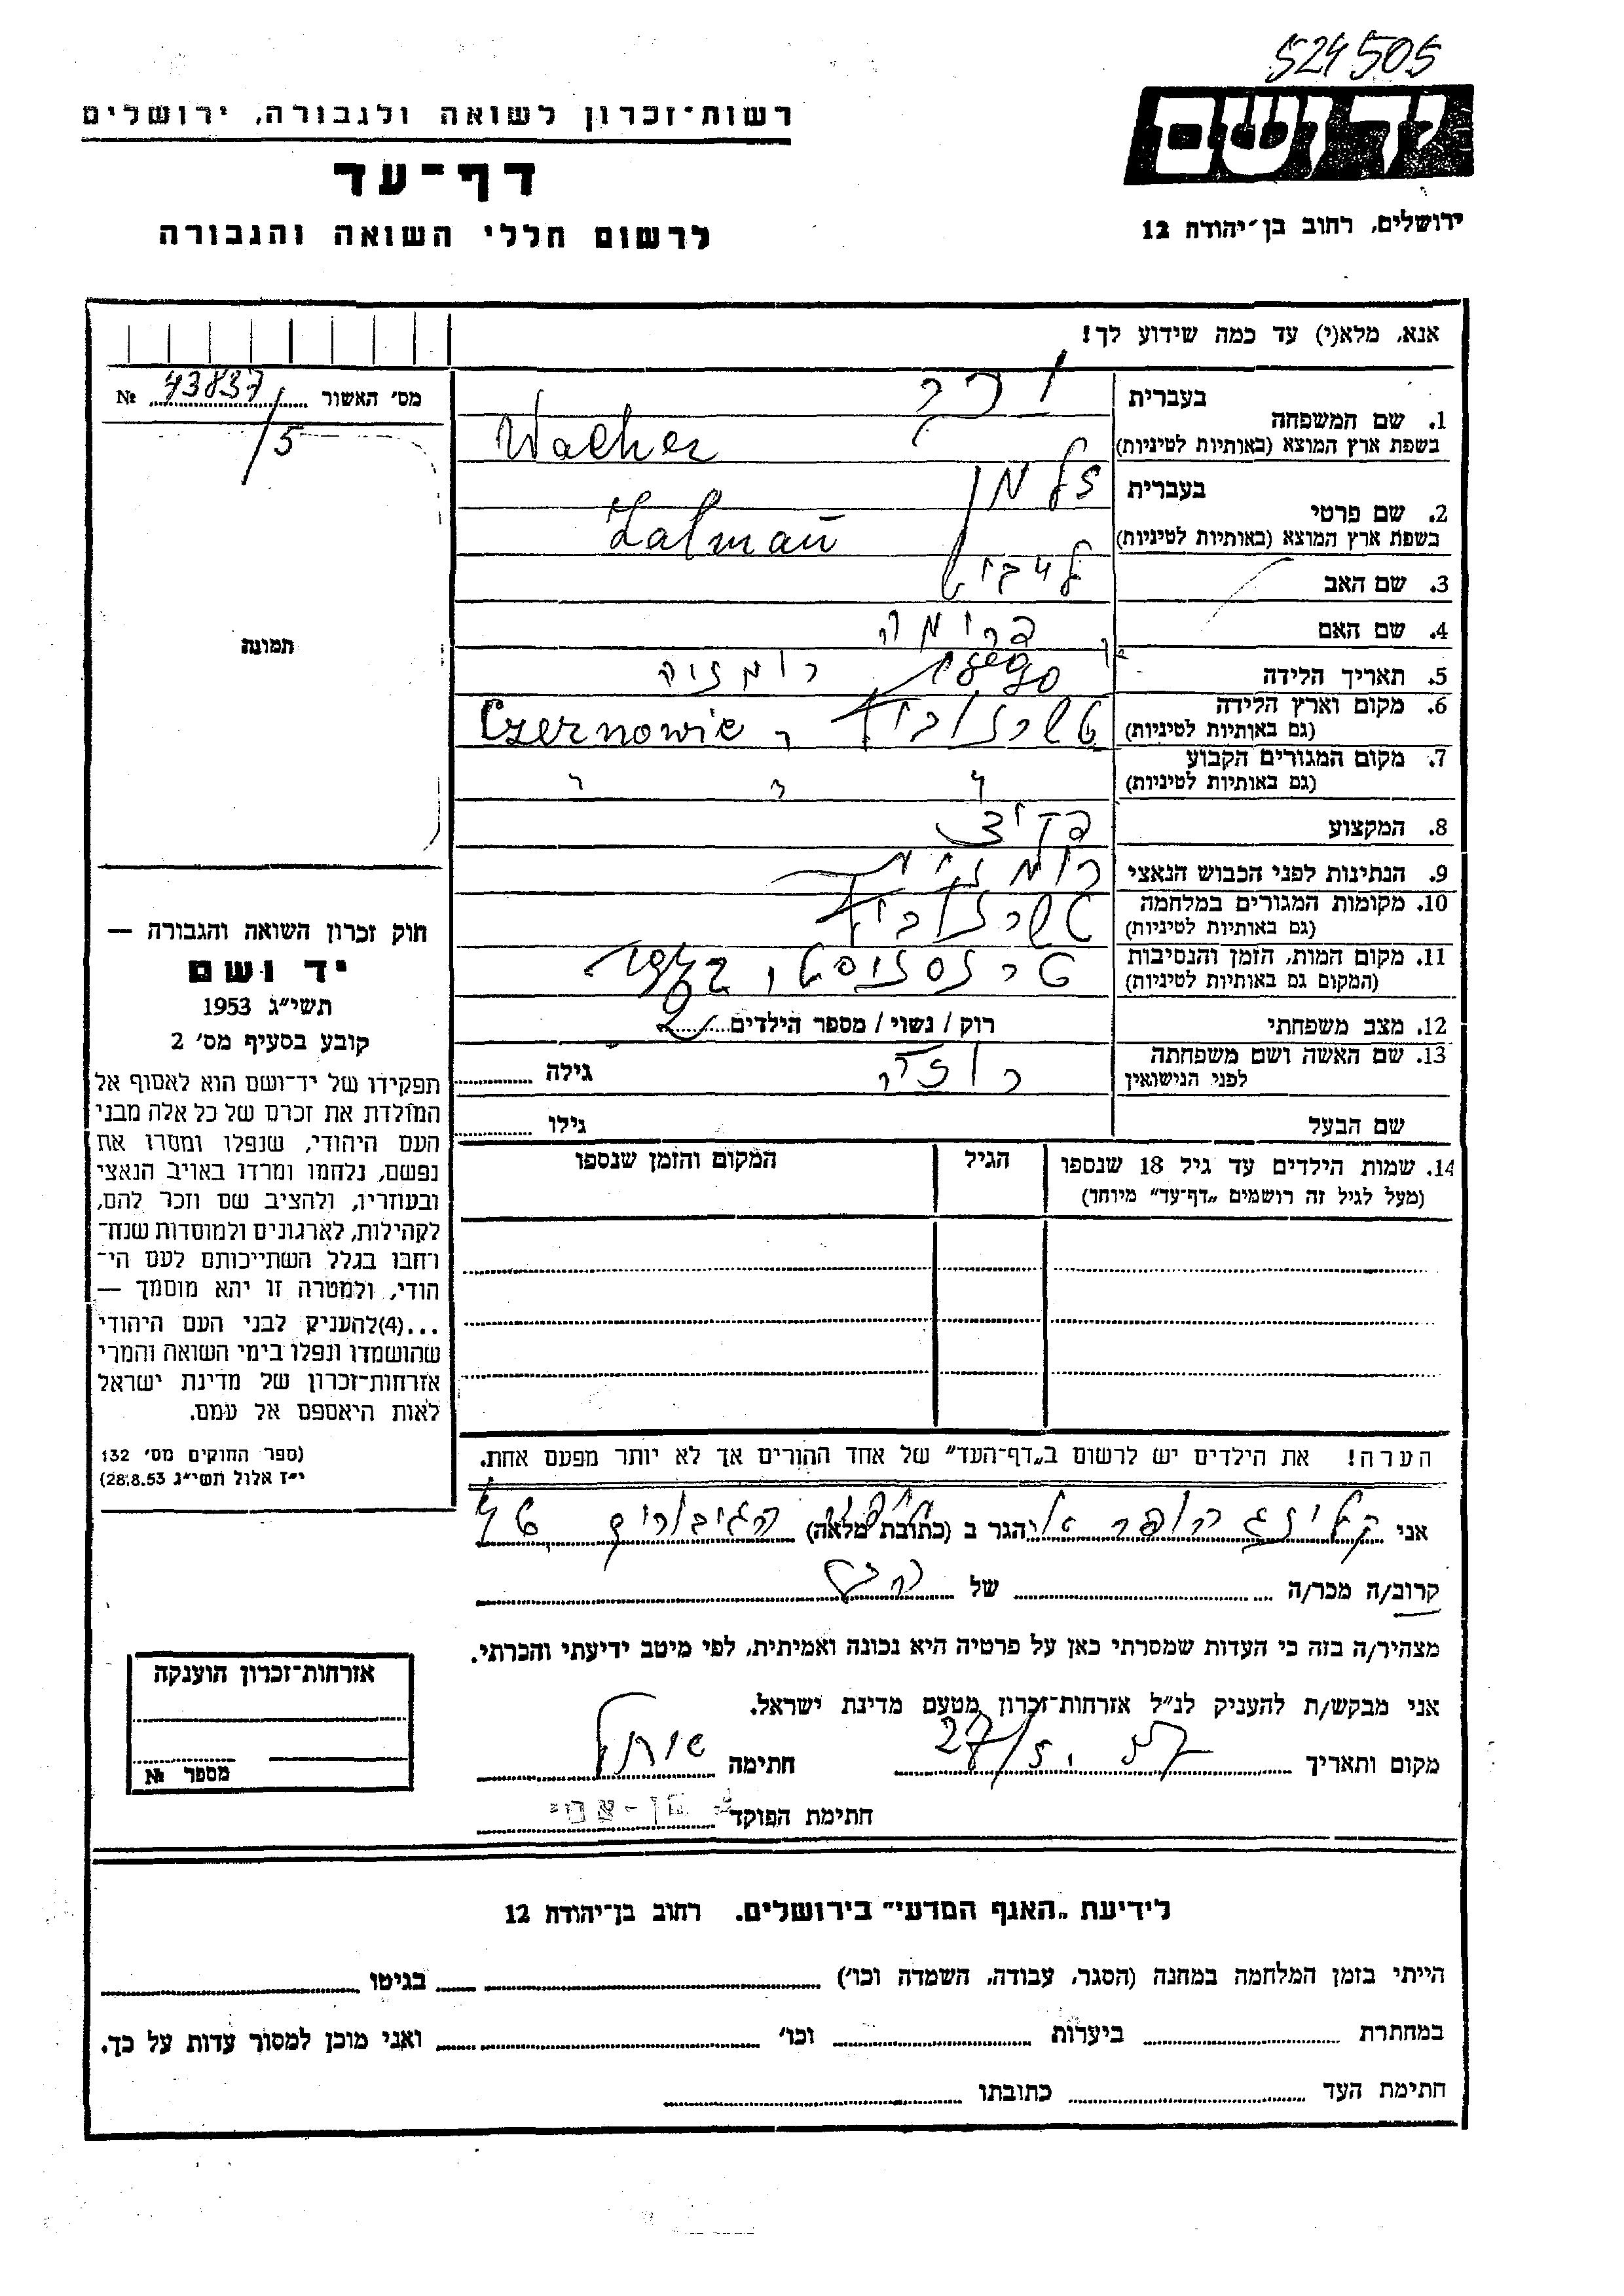 524505
יד ושם
רשות־זכרון לשואה ולגבורה, ירושלים
דף־עד
לרשום חללי השואה והגבורה
ירושלים, רחוב בן־יהודה 12
אנא, מלא(י) עד כמה שידוע לך!
מס׳ האשור 43837 №
/5
תמונה
1. שם המשפחה
בעברית
בשפת ארץ המוצא (באותיות לטיניות) Wacher
2. שם פרטי
בעברית זלמן
בשפת ארץ המוצא (באותיות לטיניות) Zalman
3. שם האב לייביש
4. שם האם ברימה
5. תאריך הלידה 1890 רומניה
6. מקום וארץ הלידה טשרנוביץ Czernowic
(גם באותיות לטיניות)
7. מקום המגורים הקבוע
(גם באותיות לטיניות)
8. המקצוע
9. הנתינות לפני הכבוש הנאצי רומנית
10. מקומות המגורים במלחמה טשרנוביץ
(גם באותיות לטיניות)
11. מקום המות, הזמן והנסיבות טרנסניסטו, 1942
(המקום גם באותיות לטיניות)
12. מצב משפחתי רוק / נשוי / מספר הילדים 2
13. שם האשה ושם משפחתה רוזה גילה
לפני הנישואין
שם הבעל גילו
14. שמות הילדים עד גיל 18 שנספו הגיל המקום והזמן שנספו
(מעל לגיל זה רושמים „דף־עד״ מיוחד)
הערה! את הילדים יש לרשום ב„דף־העד״ של אחד ההורים אך לא יותר מפעם אחת.
חוק זכרון השואה והגבורה —
יד ושם
תשי״ג 1953
קובע בסעיף מס׳ 2
תפקידו של יד־ושם הוא לאסוף אל
המולדת את זכרם של כל אלה מבני
העם היהודי, שנפלו ומסרו את
נפשם, נלחמו ומרדו באויב הנאצי
ובעוזריו, ולהציב שם וזכר להם,
לקהילות, לארגונים ולמוסדות שנח־
רחבו בגלל השתייכותם לעם הי־
הודי, ולמטרה זו יהא מוסמך —
...(4)להעניק לבני העם היהודי
שהושמדו ונפלו בימי השואה והמרי
אזרחות־זכרון של מדינת ישראל
לאות היאספם אל עמם.
(ספר החוקים מס׳ 132
י״ז אלול תשי״ג 28.8.53)
אני הגר ב (כתובת מלאה) הגיבורים
קרוב/ה מכר/ה של
מצהיר/ה בזה כי העדות שמסרתי כאן על פרטיה היא נכונה ואמיתית, לפי מיטב ידיעתי והכרתי.
אני מבקש/ת להעניק לנ״ל אזרחות־זכרון מטעם מדינת ישראל.
מקום ותאריך 27/5.57 חתימה
חתימת הפוקד
אזרחות־זכרון הוענקה
מספר №
לידיעת „האגף המדעי״ בירושלים. רחוב בן־יהודה 12
הייתי בזמן המלחמה במחנה (הסגר, עבודה, השמדה וכו׳) בגיטו
במחתרת ביערות וכו׳ ואני מוכן למסור עדות על כך.
חתימת העד כתובתו